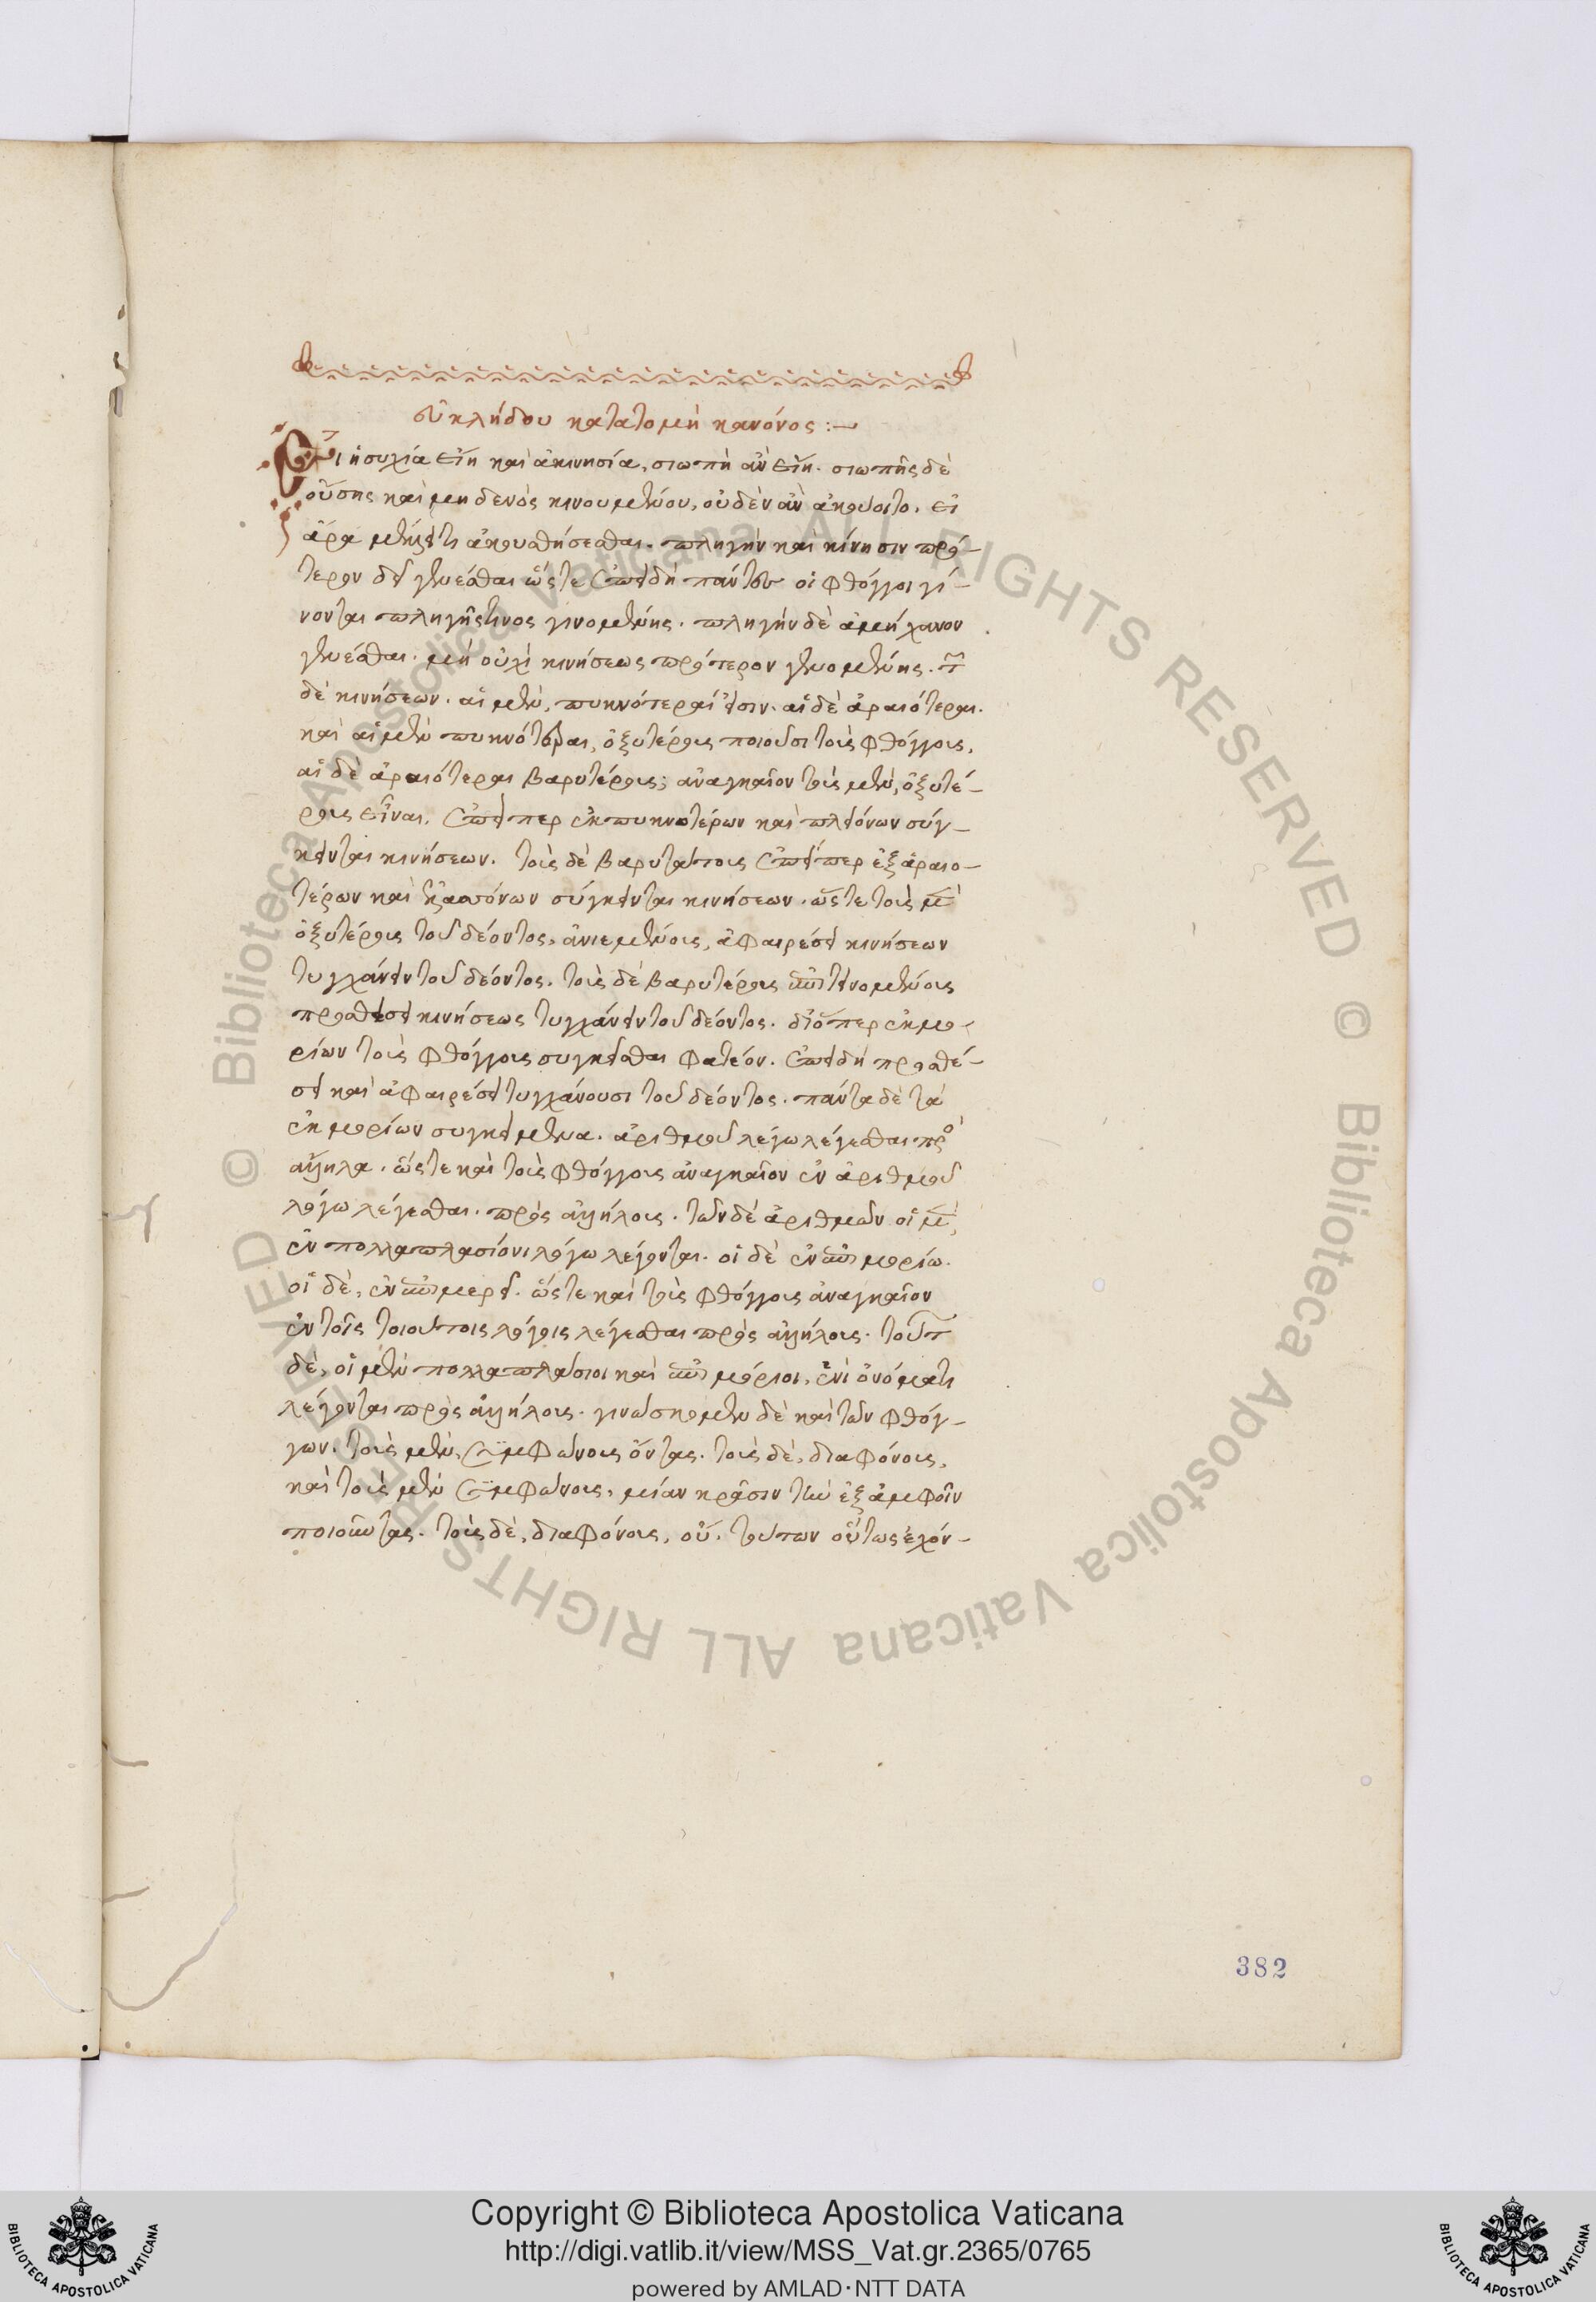 εὐκλήδου κατατομὴ κανόνος :—
Εἰ ἡσυχία εἴη καὶ ἀκινησία, σιωπὴ ἂν εἴη. σιωπῆς δὲ
οὔσης καὶ μηδενὸς κινουμένου, οὐδὲν ἂν ἀκούοιτο. εἰ
ἄρα μέλλει τι ἀκουσθήσεσθαι. πληγὴν καὶ κίνησιν πρό-
τερον δεῖ γενέσθαι ὥστε ἐπειδὴ πάντες οἱ φθόγγοι γί-
νονται πληγῆς τινος γινομένης. πληγὴν δὲ ἀμήχανον
γενέσθαι. μὴ οὐχὶ κινήσεως πρότερον γενομένης. τῶν
δὲ κινήσεων. αἱ μὲν, πυκνότεραί εἰσιν. αἱ δὲ ἀραιότεραι.
καὶ αἱ μὲν πυκνότεραι, ὀξυτέρους ποιοῦσι τοὺς φθόγγους,
αἱ δὲ ἀραιότεραι βαρυτέρους; ἀναγκαῖον τοὺς μὲν, ὀξυτέ-
ρους εἶναι. ἐπείπερ ἐκ πυκνοτέρων καὶ πλειόνων σύγ-
κεινται κινήσεων. τοὺς δὲ βαρυτάτους ἐπείπερ ἐξ ἀραιο-
τέρων καὶ ἐλασσόνων σύγκεινται κινήσεων. ὥστε τοὺς μὲν
ὀξυτέρους τοῦ δέοντος, ἀνιεμένους, ἀφαιρέσει κινήσεων
τυγχάνειν τοῦ δέοντος. τοὺς δὲ βαρυτέρους ἐπιτεινομένους
προσθέσει κινήσεως τυγχάνειν τοῦ δέοντος. διόπερ ἐκ μο-
ρίων τοὺς φθόγγους συγκεῖσθαι φατέον. ἐπειδὴ προσθέ-
σει καὶ ἀφαιρέσει τυγχάνουσι τοῦ δέοντος. πάντα δὲ τὰ
ἐκ μορίων συγκείμενα. ἀριθμοῦ λόγω λέγεσθαι πρὸς
ἄλληλα. ὥστε καὶ τοὺς φθόγγους ἀναγκαῖον ἐν ἀριθμοῦ
λόγω λέγεσθαι. πρὸς ἀλλήλους. τῶν δὲ ἀριθμῶν οἱ μὲν,
ἐν πολλαπλασίονι λόγω λέγονται. οἱ δὲ ἐν ἐπιμορίω.
οἱ δὲ, ἐν ἐπιμερεῖ. ὥστε καὶ τοὺς φθόγγους ἀναγκαῖον
ἐν τοῖς τοιούτοις λόγοις λέγεσθαι πρὸς ἀλλήλους. τούτων
δὲ, οἱ μὲν πολλαπλάσιοι καὶ ἐπιμόριοι, ἑνὶ ὀνόματι
λέγονται πρὸς ἀλλήλους. γινώσκομεν δὲ καὶ τῶν φθόγ-
γων. τοὺς μὲν, συμφώνους ὄντας. τοὺς δὲ, διαφόνους,
καὶ τοὺς μὲν συμφώνους, μίαν κρᾶσιν τὴν ἐξ ἀμφοῖν
ποιοῦντας. τοὺς δὲ, διαφόνους, οὔ. τούτων οὕτως ἐχόν-
382
© Biblioteca Apostolica Vaticana ALL RIGHTS RESERVED © Biblioteca Apostolica Vaticana ALL RIGHTS RESERVED
Copyright © Biblioteca Apostolica Vaticana
http://digi.vatlib.it/view/MSS_Vat.gr.2365/0765
powered by AMLAD·NTT DATA
BIBLIOTECA APOSTOLICA VATICANA
BIBLIOTECA APOSTOLICA VATICANA